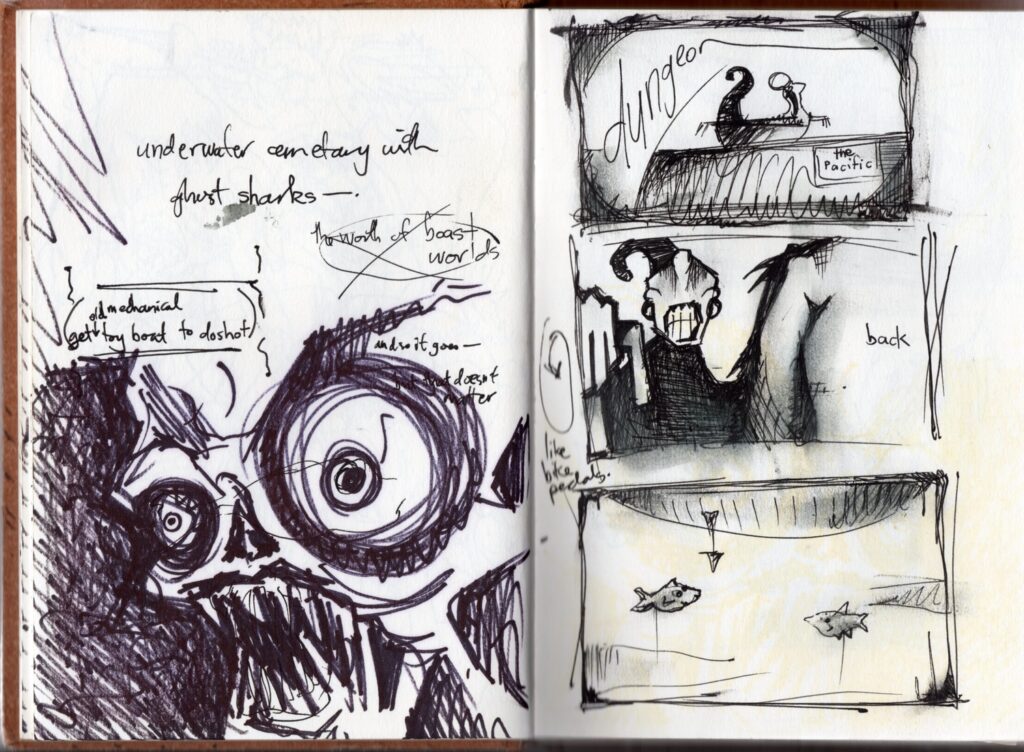 underwater cemetary with
ghost sharks—.
the worth of boast
worlds
old mechanical
get toy boat to
and so it goes—
that doesn't
matter
dungeon
the
Pacific
back
like
bike
pedals.